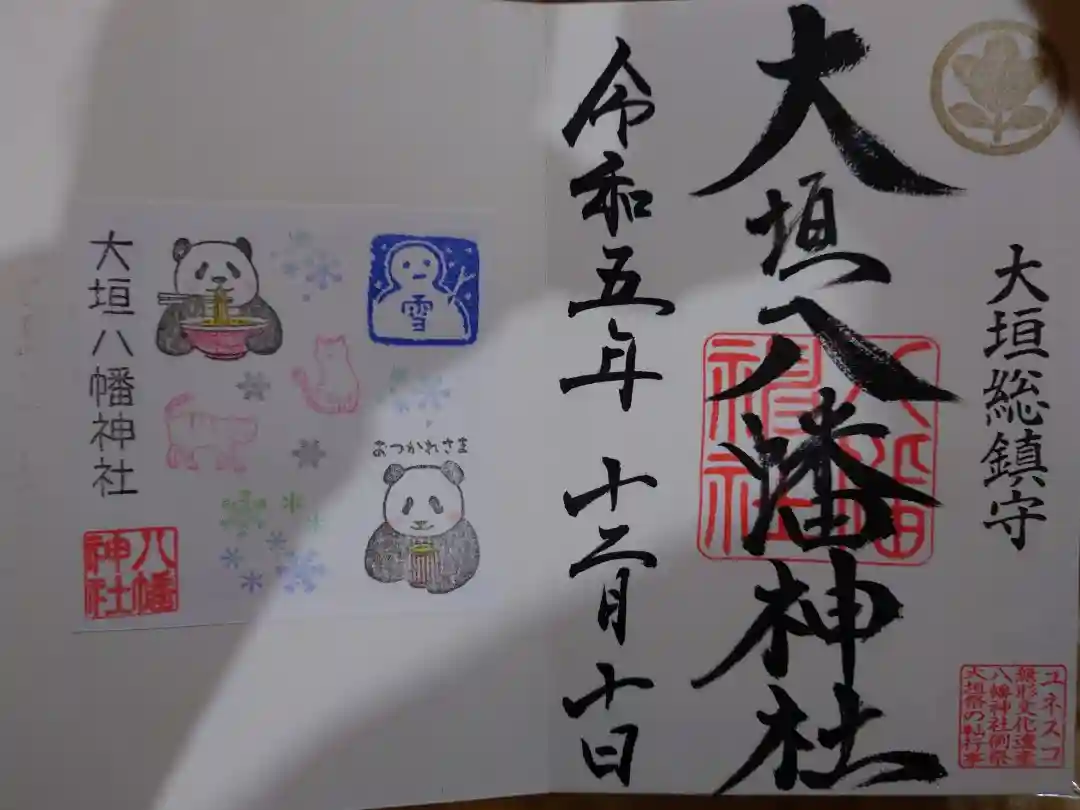 大垣総鎮守
大垣八幡神社
八幡
神社
令和五年十二月十日
ユネスコ
無形文化遺産
八幡神社例祭
大垣祭の軕行事
雪
おつかれさま
大垣八幡神社
八幡
神社